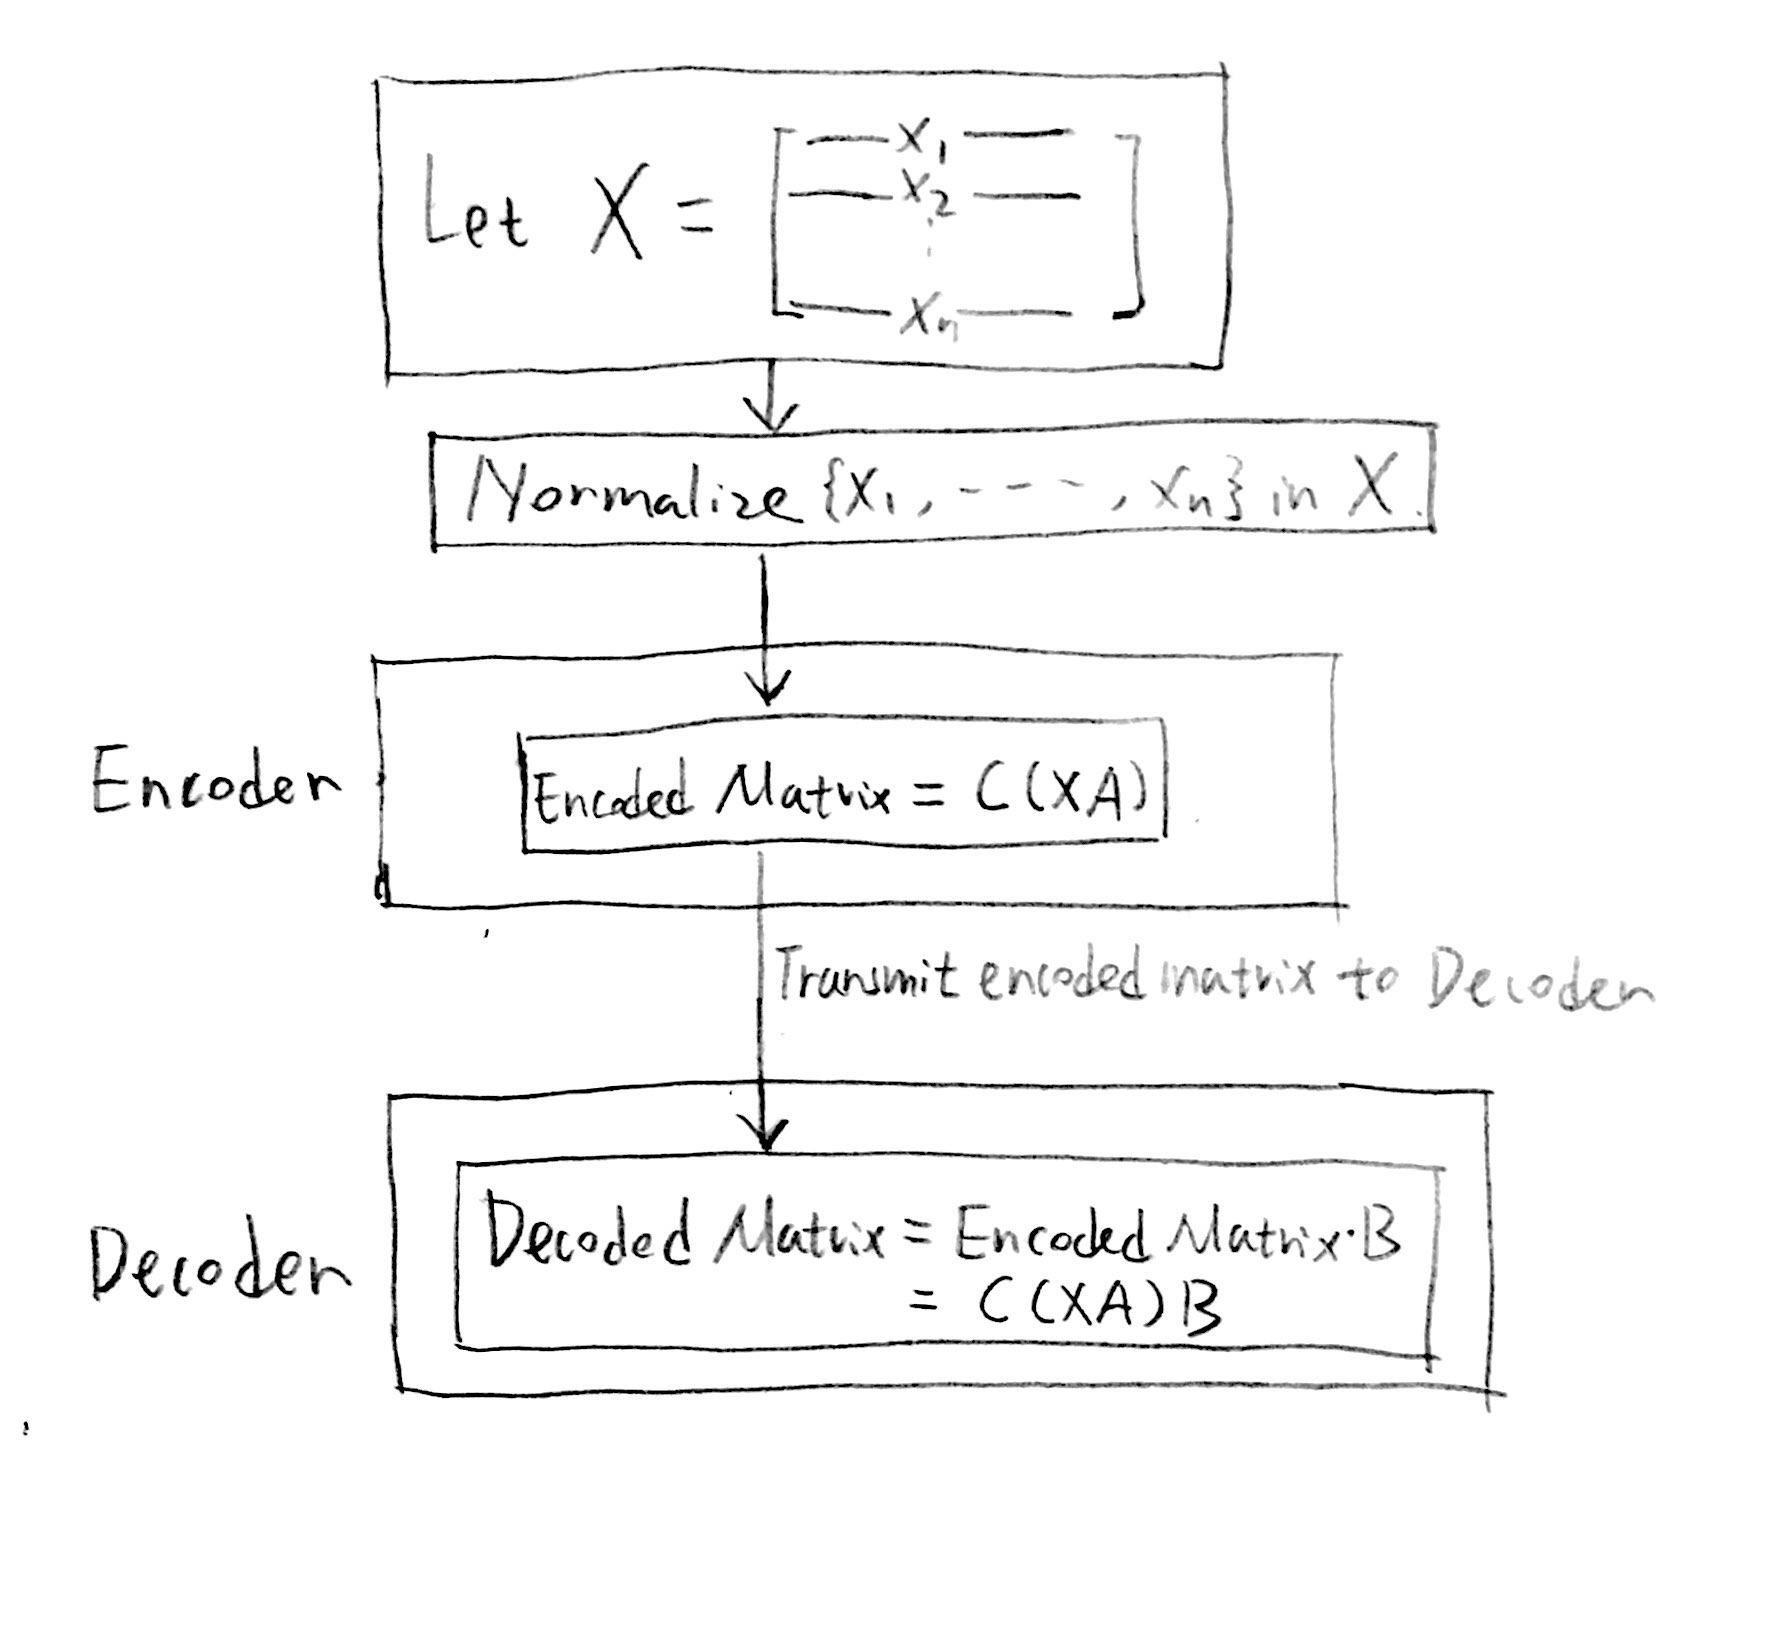 Let X = [ — x₁ —
— x₂ —
⋮
— xₙ — ]
Normalize {x₁, ----, xₙ} in X.
Encoder
Encoded Matrix = C(XA)
Transmit encoded matrix to Decoder
Decoder
Decoded Matrix = Encoded Matrix·B
= C(XA)B